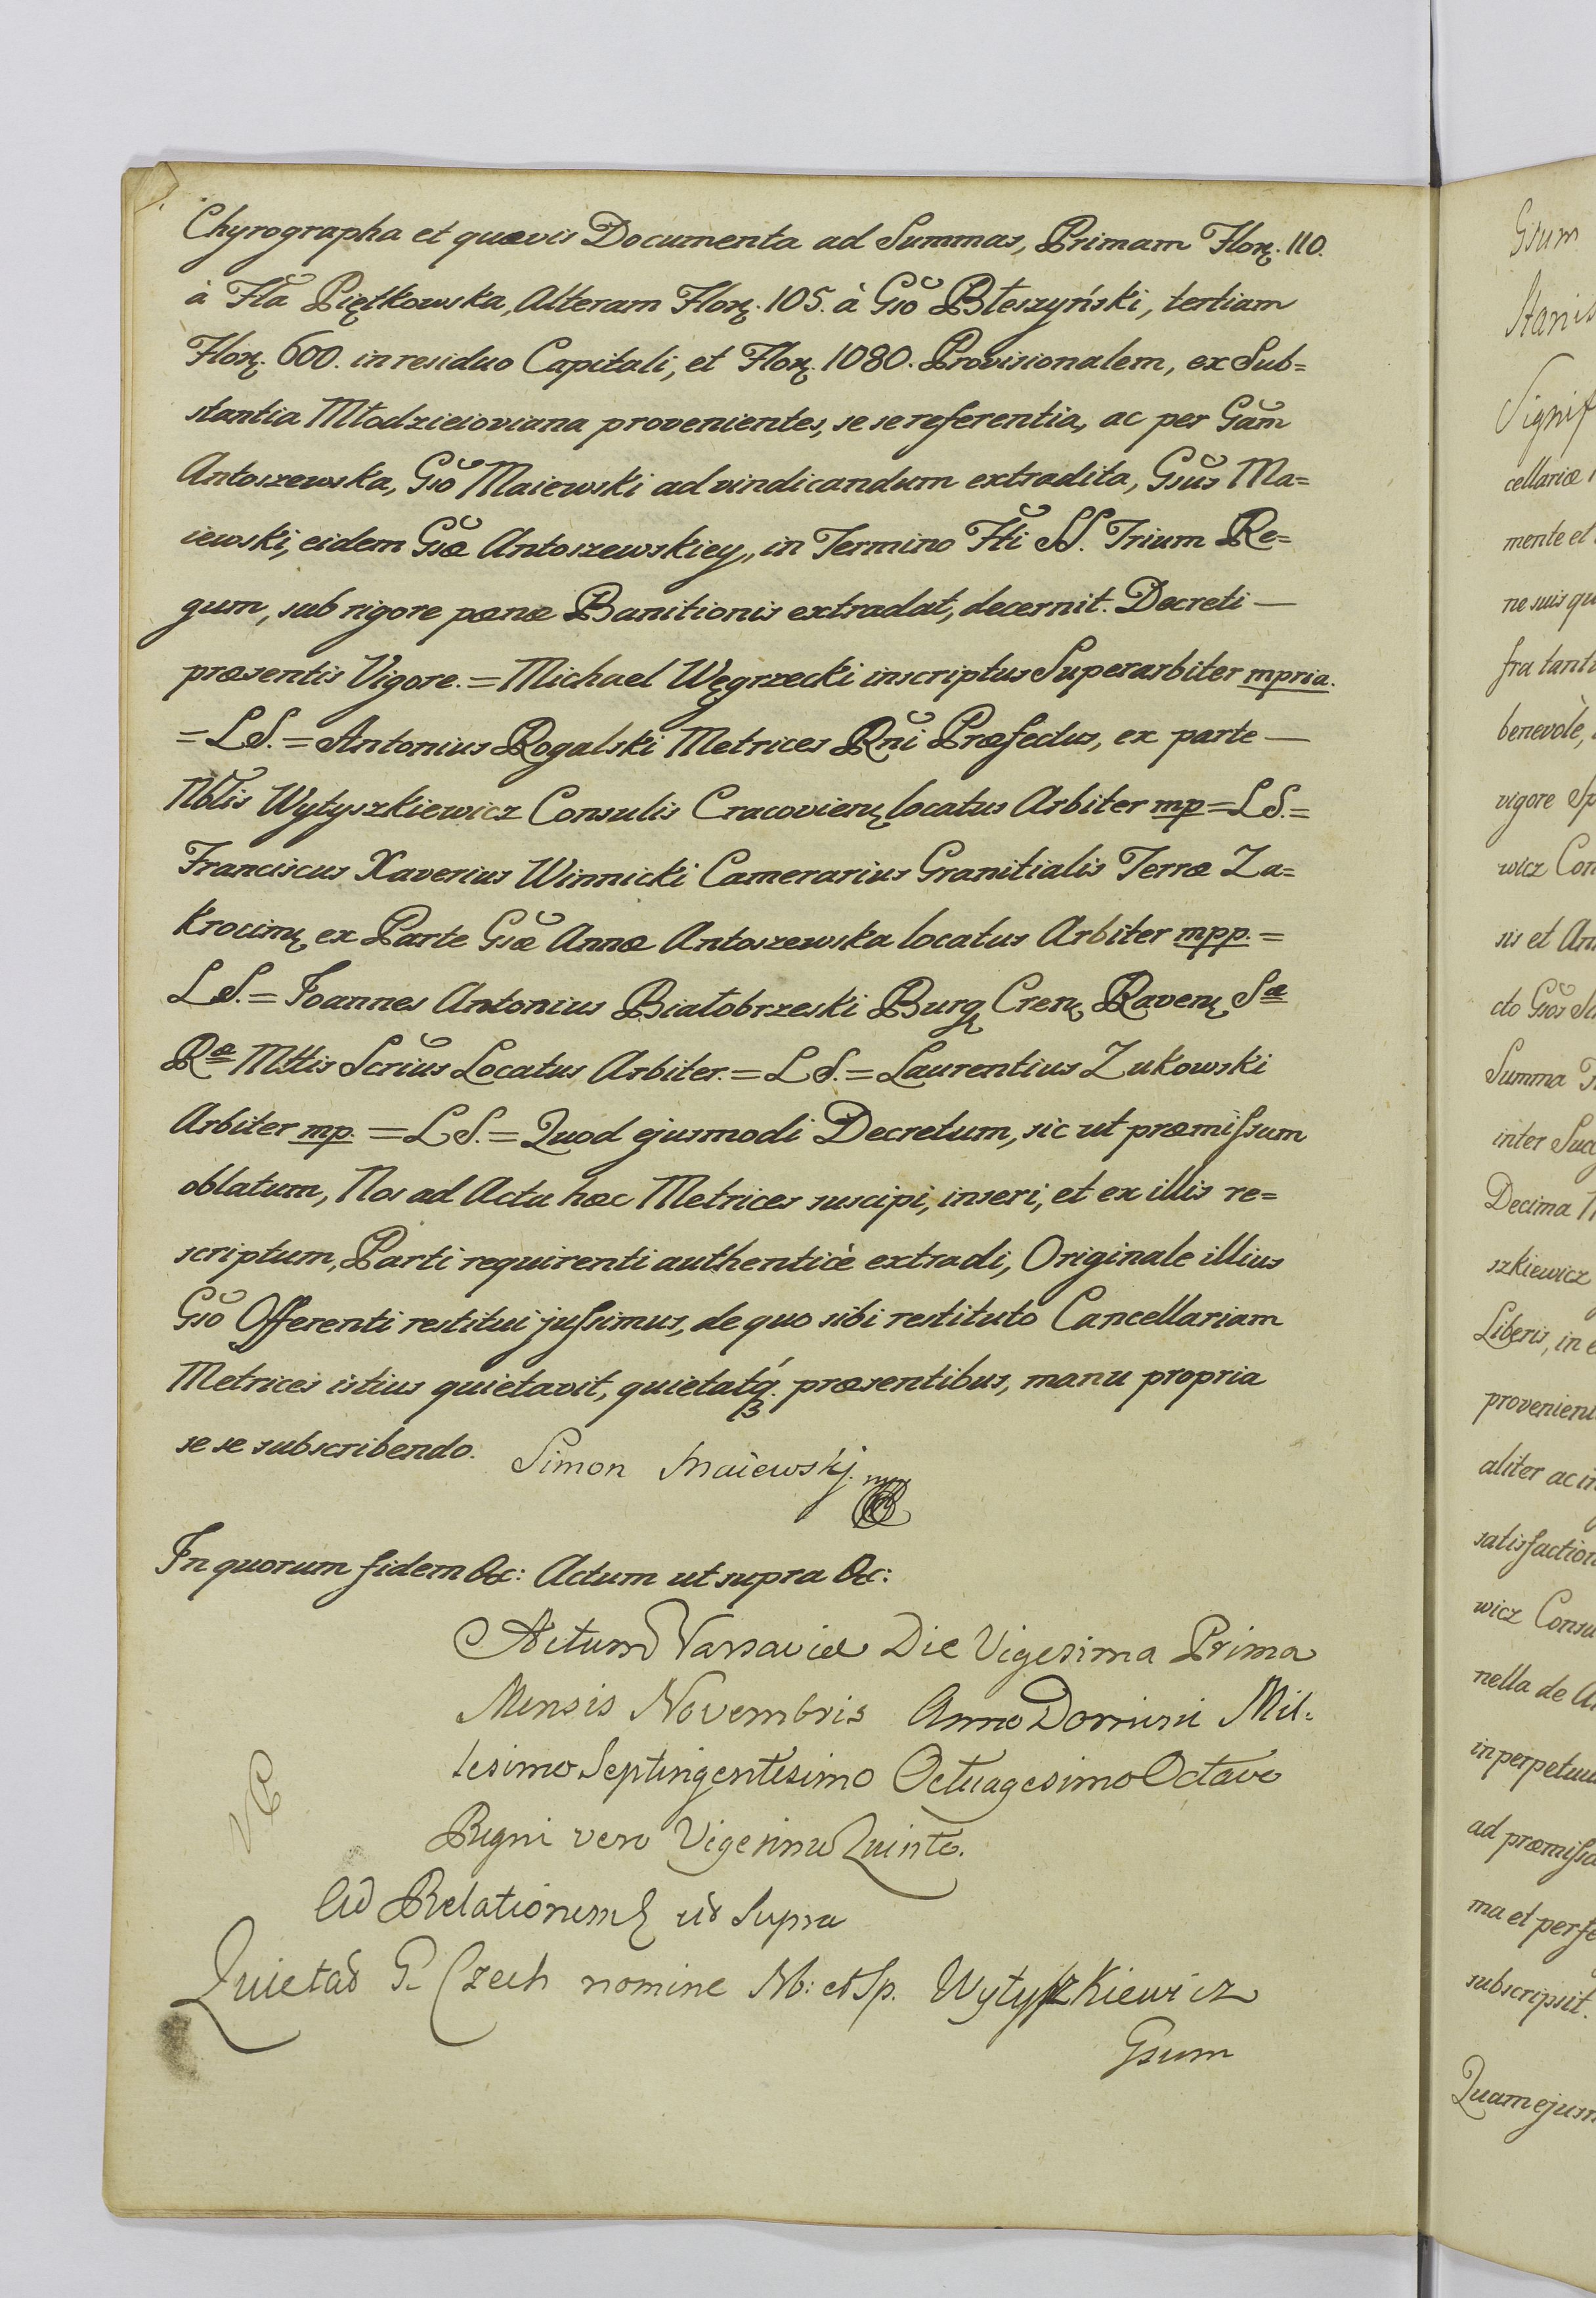 Chyrographa et quævis Documenta ad Summas, Primam Florę. 110.
à Fla Piętkowska, Alteram Florę. 105. à Gso Błeszyński, tertiam
Florę. 600. in residuo Capitali, et Florę. 1080. Provisionalem, ex Sub=
stantia Młodzieioviana provenientes, se se referentia, ac per Gsam
Antoszewska, Gso Maiewski ad vindicandum extradita, Gsus Ma=
iewski, eidem Gsæ Antoszewskiey, in Termino Fti SS. Trium Re=
gum, sub rigore pœnæ Banitionis extradat, decernit. Decreti —
præsentis Vigore. = Michael Węgrzecki inscriptus Superarbiter mpria.
= LS. = Antonius Rogalski Metrices Rni Præfectus, ex parte —
Nblis Wytyszkiewicz Consulis Cracovienę locatus Arbiter mp = LS. =
Franciscus Xaverius Winnicki Camerarius Granitialis Terræ Za=
krocimę ex Parte Gsæ Annæ Antoszewska locatus Arbiter mpp. =
LS. = Joannes Antonius Białobrzeski Burgę Crenę Ravenę Sæ
Ræ Mttis Scrius Locatus Arbiter. = LS. = Laurentius Zukowski
Arbiter mp. = LS. = Quod ejusmodi Decretum, sic ut præmissum
oblatum, Nos ad Acta hæc Metrices suscipi, inseri, et ex illis re=
scriptum, Parti requirenti authenticè extradi, Originale illius
Gso Offerenti restitui jussimus, de quo sibi restituto Cancellariam
Metrices istius quietavit, quietatq́ꝫ. præsentibus, manu propria
se se subscribendo. Simon Maiewskj mpp
In quorum fidem &c: Actum ut supra &c:
Actum Varsaviæ Die Vigesima Prima
Mensis Novembris Anno Domini Mil=
lesimo Septingentesimo Octuagesimo Octavo
Regni vero Vigesimo Quinto.
Ad Relationem ut Supra
Quietat G. Czech nomine Nb: et Sp. Wytyszkiewicz
Gsum
Gsum
Stanis
Signif
cellariæ
mente et
ne suis qu
fra tant
benevolè,
vigore Sp
wicz Con
sis et An
cto Gsos
Summa
inter Succ
Decima
szkiewicz
Liberis, in
provenient
aliter ac in
satisfaction
wicz Consu
nella de A
in perpetuu
ad præmissa
ma et perfe
subscripsit.
Quam ejusm